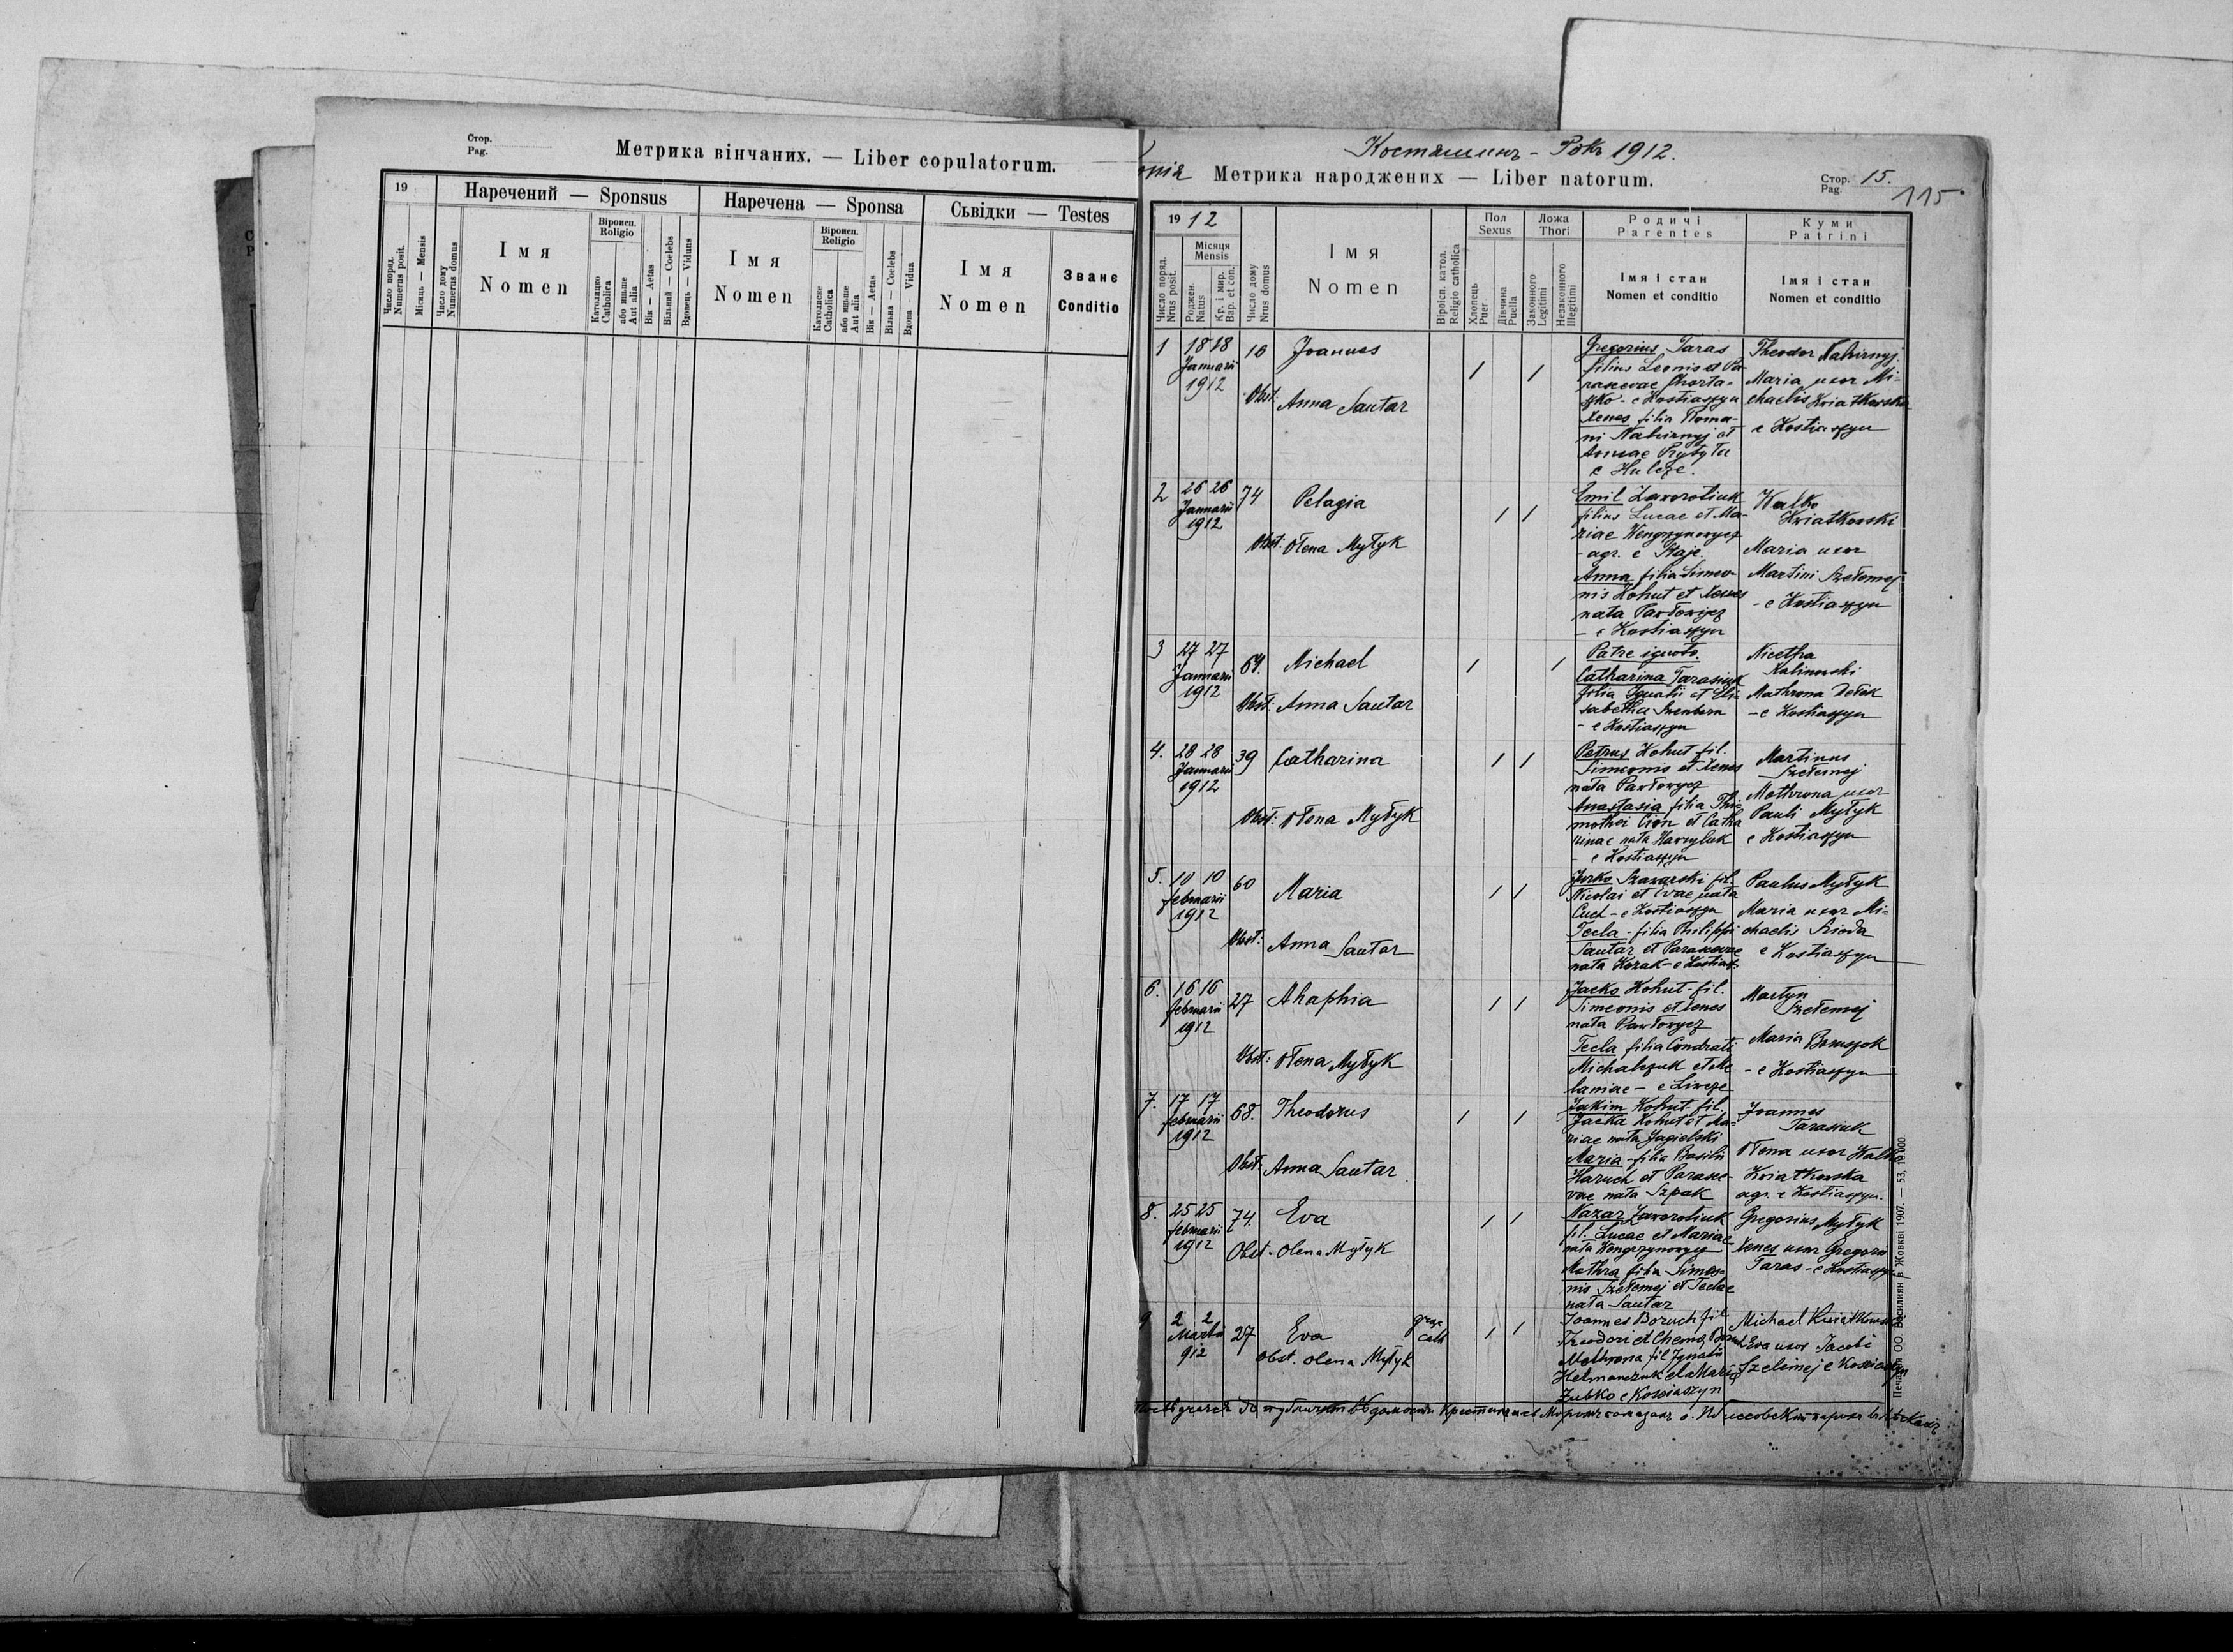 Стор.
Pag.
Метрика вінчаних. — Liber copulatorum.
19
Наречений — Sponsus
Наречена — Sponsa
Сьвідки — Testes
Число поряд.
Numerus posit.
Місяць — Mensis
Число дому
Numerus domus
Імя
Nomen
Віроисп.
Religio
Католицко
Catholica
або иньше
Aut alia
Вік — Aetas
Вільний — Coelebs
Вдовець — Viduus
Імя
Nomen
Віроисп.
Religio
Католиске
Catholica
або иньше
Aut alia
Вік — Aetas
Вільна — Coelebs
Вдова Vidua
Імя
Nomen
Званє
Conditio
Костяшинъ - Рокъ 1912.
Метрика народжених — Liber natorum.
Стор.
Pag.
15.
115
1912
Число поряд.
Nrus posit.
Місяця
Mensis
Роджен.
Natus
Кр. і мир.
Bap. et con.
Число дому
Nrus domus
Імя
Nomen
Віроісп. катол.
Religio catholica
Пол
Sexus
Хлопець
Puer
Дівчина
Puella
Ложа
Thori
Законного
Legitimi
Незаконного
Illegitimi
Родичі
Parentes
Імя і стан
Nomen et conditio
Куми
Patrini
Імя і стан
Nomen et conditio
1
18 18
Januarii
1912
16
Joannes
Obst: Anna Sautar
/
/
Gregorius Taras
filius Leonis et Pa-
rascevae Chorta-
szko - e Kostiaszyn
Xenes filia Roma-
ni Nahirnyj et
Annae Przybyla
e Hulcze.
Theodor Nahirnyj.
Maria uxor Mi-
chaelis Kwiatkowski
e Kostiaszyn
2
26 26
Januarii
1912
74
Pelagia
Obst: Ołena Mytyk
/
/
Emil Zaworotiuk
filius Lucae et Ma-
riae Wengrzynowycz
- agr. e Staje.
Anna filia Simeo-
nis Kohut et Xenes
nata Pawłowycz
- e Kostiaszyn
Walko
Kwiatkowski
Maria uxor
Martini Szełemej
- e Kostiaszyn
3
27 27
Januarii
1912
64.
Michael
Obst: Anna Sautar
/
/
Patre ignoto.
Catharina Tarasiuk
filia Ignatii et Eli-
sabetha
- e Kostiaszyn
Nicetha
Kalinowski
Mathrona
- e Kostiaszyn
4.
28 28
Januarii
1912
39
Catharina
Obst: Ołena Mytyk
/
/
Petrus Kohut fil.
Simeonis et Xenes
nata Pawłowycz
Anastasia filia Thi-
mothei Cion et Catha
rinae nata Hawryluk
- e Kostiaszyn
Martinus
Szełemej
Mathrona uxor
Pauli Mytyk
e Kostiaszyn
5.
10 10
februarii
1912
60
Maria
Obst: Anna Sautar
/
/
Jurko Szawarski fil.
Nicolai et Evae nata
Cuch - e Kostiaszyn
Tecla - filia Philippi
Sautar et Parascevae
nata Kozak - e Kostiasz
Paulus Mytyk
Maria uxor Mi-
chaelis
e Kostiaszyn
6.
16 16
februarii
1912
27
Ahaphia
Obst: Ołena Mytyk
/
/
Jacko Kohut - fil.
Simeonis et Xenes
nata Pawłowycz
Tecla filia Condrati
Michalczuk et Me
laniae - e Liwcze
Martyn
Szełemej
Maria
- e Kostiaszyn
7.
17 17
februarii
1912
68.
Theodorus
Obst: Anna Sautar
/
/
Jakim Kohut - fil.
Jacka Kohut et Ma-
riae nata Jagielski
Maria - filia Basilii
Haruch et Parasce-
vae nata Szpak
Joannes
Tarasiuk
Ołena uxor Walka
Kwiatkowska
agr. e Kostiaszyn.
8.
25 25
februarii
1912
74.
Eva
Obst. Olena Mytyk
/
/
Nazar Zaworotiuk
fil. Lucae et Mariae
nata Wengrzynowycz
Mathra filia Simeo-
nis Szełemej et Teclae
nata Sautar
Gregorius Mytyk
Xenes uxor Gregorii
Taras - e Kostiaszyn
9
2 2
Martii
912
27
Eva
graec
cath
obst. olena Mytyk
/
/
Joannes Boruch fil
Theodori et
Mathrona fil Ignatii
Hetmanczuk et Maria
Zubko e Kosciaszyn
Michael Kwiatkowski
Eva uxor Jacobi
Szelemej e Kosciaszyn
Печатня ОО. Василиян в Жовкві 1907. — 53, 10.000.